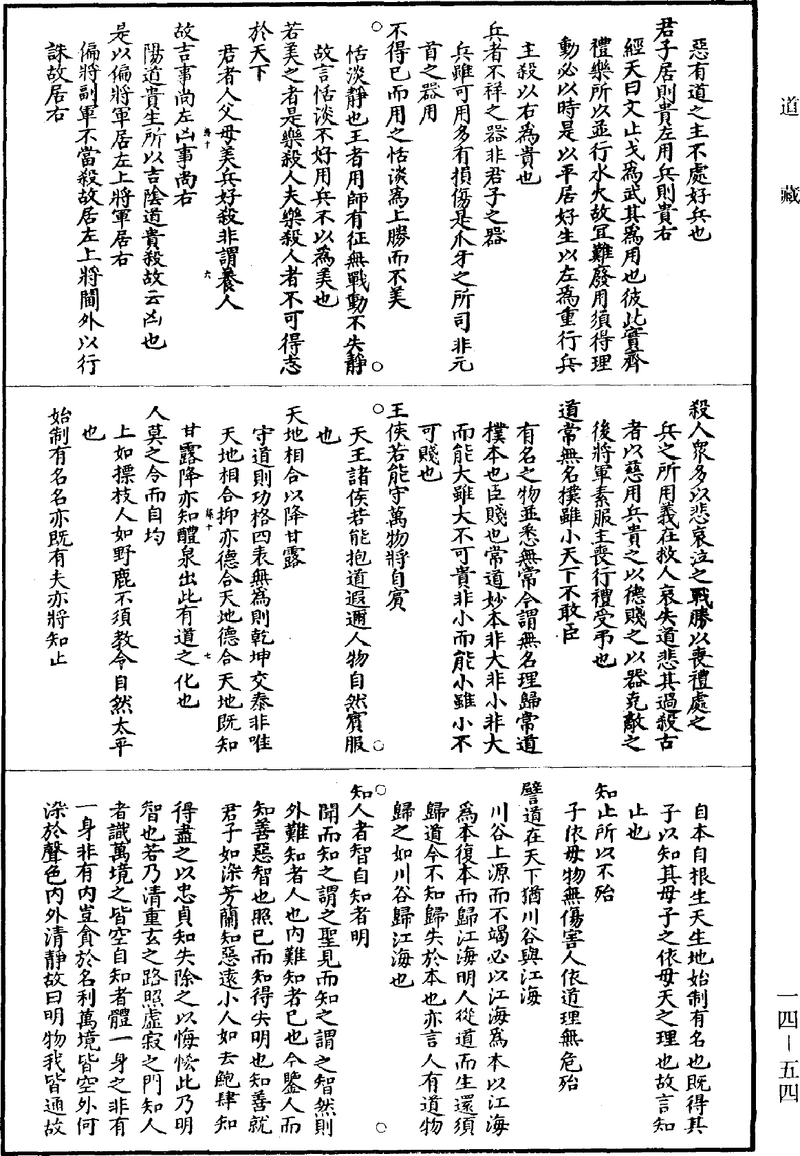 道藏
惡有道之主不處好兵也
君子居則貴左用兵則貴右
經天曰文止戈爲武其爲用也彼此實齊
禮樂所以並行水火故宜難廢用須得理
動必以時是以平居好生以左爲重行兵
主殺以右爲貴也
兵者不祥之器非君子之器
兵雖可用多有損傷是爪牙之所司非元
首之器用
不得已而用之恬淡爲上勝而不美
恬淡靜也王者用師有征無戰動不失靜
故言恬淡不好用兵不以爲美也
若美之者是樂殺人夫樂殺人者不可得志
於天下
君者人父母美兵好殺非謂養人
故吉事尚左凶事尚右
陽道貴生所以吉陰道貴殺故云凶也
是以偏將軍居左上將軍居右
偏將副軍不當殺故居左上將閫外以行
誅故居右
殺人衆多以悲哀泣之戰勝以喪禮處之
兵之所用義在救人哀失道悲其過殺古
者以惡用兵貴之以德賤之以器克敵之
後將軍素服主喪行禮受弔也
道常無名樸雖小天下不敢臣
有名之物並悉無常今謂無名理歸常道
樸本也臣賤也常道妙本非大非小非大
而能大雖大不可貴非小而能小雖小不
可賤也
王侯若能守萬物將自賓
天王諸侯若能抱道遐邇人物自然賓服
也
天地相合以降甘露
守道則功格四表無爲則乾坤交泰非唯
天地相合抑亦德合天地德合天地既知
甘露降亦知醴泉出此有道之化也
人莫之令而自均
上如摽枝人如野鹿不須教令自然太平
也
始制有名名亦既有夫亦將知止
自本自根生天生地始制有名也既得其
子以知其母子之依母天之理也故言知
止也
知止所以不殆
子依母物無傷害人依道理無危殆
譬道在天下猶川谷與江海
川谷上源而不竭必以江海爲本以江海
爲本復本而歸江海明人從道而生還須
歸道今不知歸失於本也亦言人有道物
歸之如川谷歸江海也
知人者智自知者明
聞而知之謂之聖見而知之謂之智然則
外難知者人也內難知者己也今鑒人而
知善惡智也照己而知得失明也知善就
君子如染芳蘭知惡遠小人如去鮑肆知
得盡之以忠貞知失除之以悔恡此乃明
智也若乃清重玄之路照虛寂之門知人
者識萬境之皆空自知者體一身之非有
一身非有內豈貪於名利萬境皆空外何
染於聲色內外清靜故曰明物我皆通故
一四—五四